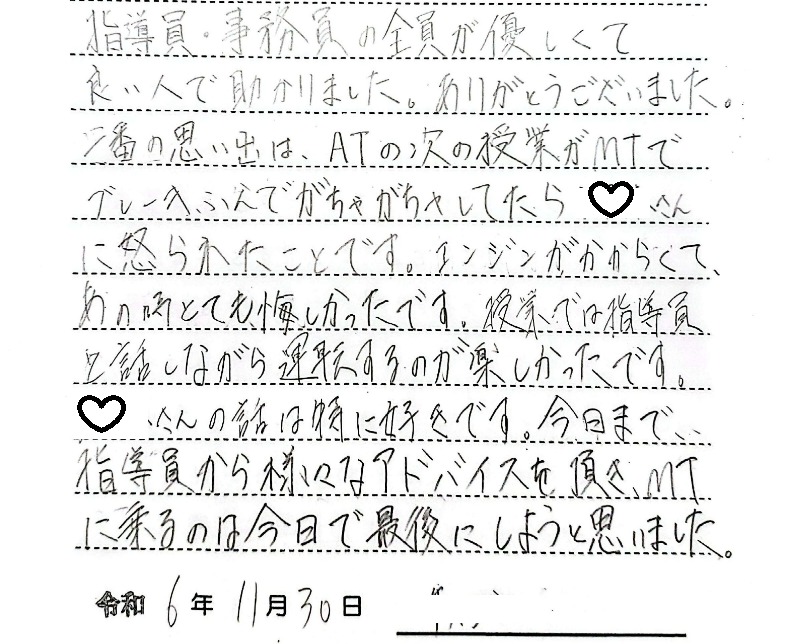 指導員・事務員の全員が優しくて
良い人で助かりました。ありがとうございました。
一番の思い出は、ATの次の授業がMTで
ブレーキふんでがちゃがちゃしてたら ♡ さん
に怒られたことです。エンジンがかからくて、
あの時とても悔しかったです。授業では指導員
と話しながら運転するのが楽しかったです。
♡ さんの話は特に好きです。今日まで、
指導員から様々なアドバイスを頂き、MT
に乗るのは今日で最後にしようと思いました。
令和 6 年 11 月 30 日